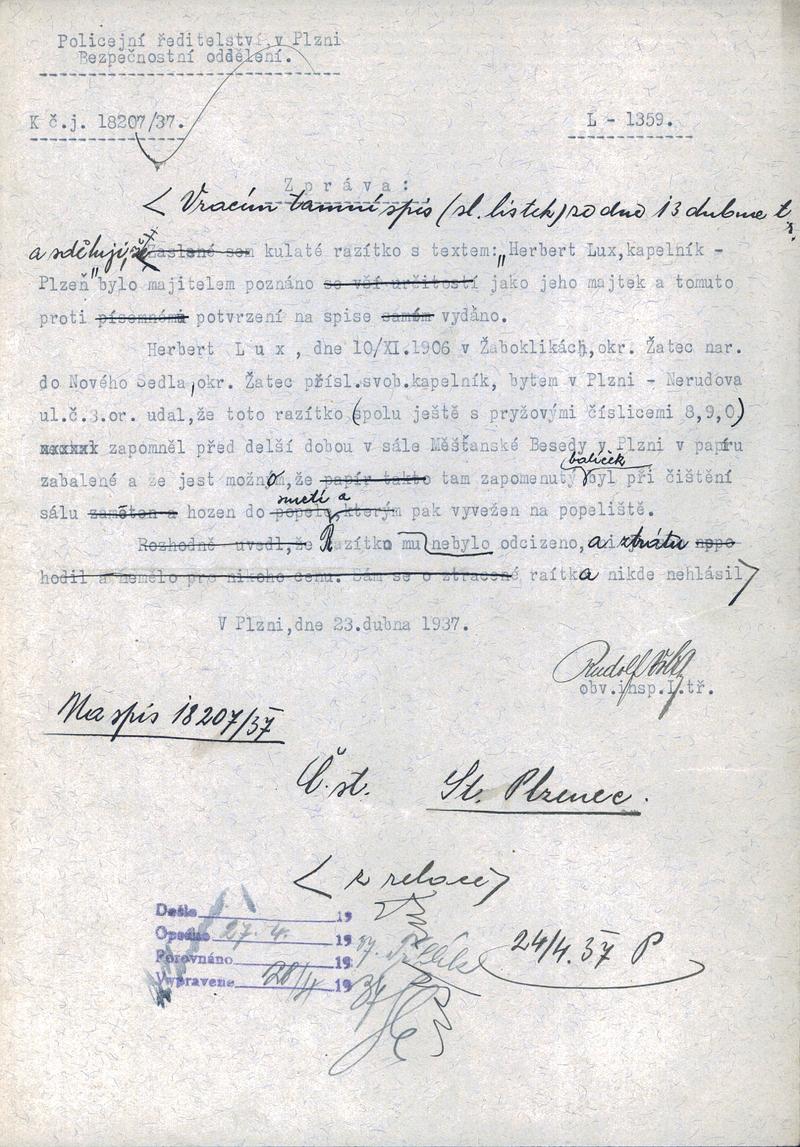 Policejní ředitelství v Plzni
Bezpečnostní oddělení.
K č.j. 18207/37.
L - 1359.
Zpráva:
Vracím tamní spis (sl. lístek) ze dne 13 dubna t. r.
a sděluji, že Zaslané sem kulaté razítko s textem: "Herbert Lux, kapelník -
Plzeň" bylo majitelem poznáno se vší určitostí jako jeho majtek a tomuto
proti písemnému potvrzení na spise samém vydáno.
Herbert Lux, dne 10/XI.1906 v Žaboklikách, okr. Žatec nar.
do Nového Sedla, okr. Žatec přísl. svob. kapelník, bytem v Plzni - Nerudova
ul.č.3.or. udal, že toto razítko (spolu ještě s pryžovými číslicemi 8,9,0)
xxxxxx zapomněl před delší dobou v sále Měšťanské Besedy v Plzni v papíru
balíček
zabalené a že jest možno, že papír takto tam zapomenutý byl při čištění
smetí a
sálu zaměten a hozen do popele, kterým pak vyvežen na popeliště.
Rozhodně uvedl, že Razítko mu nebylo odcizeno, a ztrátu
hodil a nemělo pro nikoho cenu. Sám se o ztracené raítka nikde nehlásil
V Plzni, dne 23.dubna 1937.
Rudolf
obv.insp.I.tř.
Na spis 18207/37
Č. st. St. Plzenec.
(z relace)
Došlo 19
Opsáno 27. 4. 19 37.
Porovnáno 19
Vypravene 28/4 19 37
24/4. 37 P